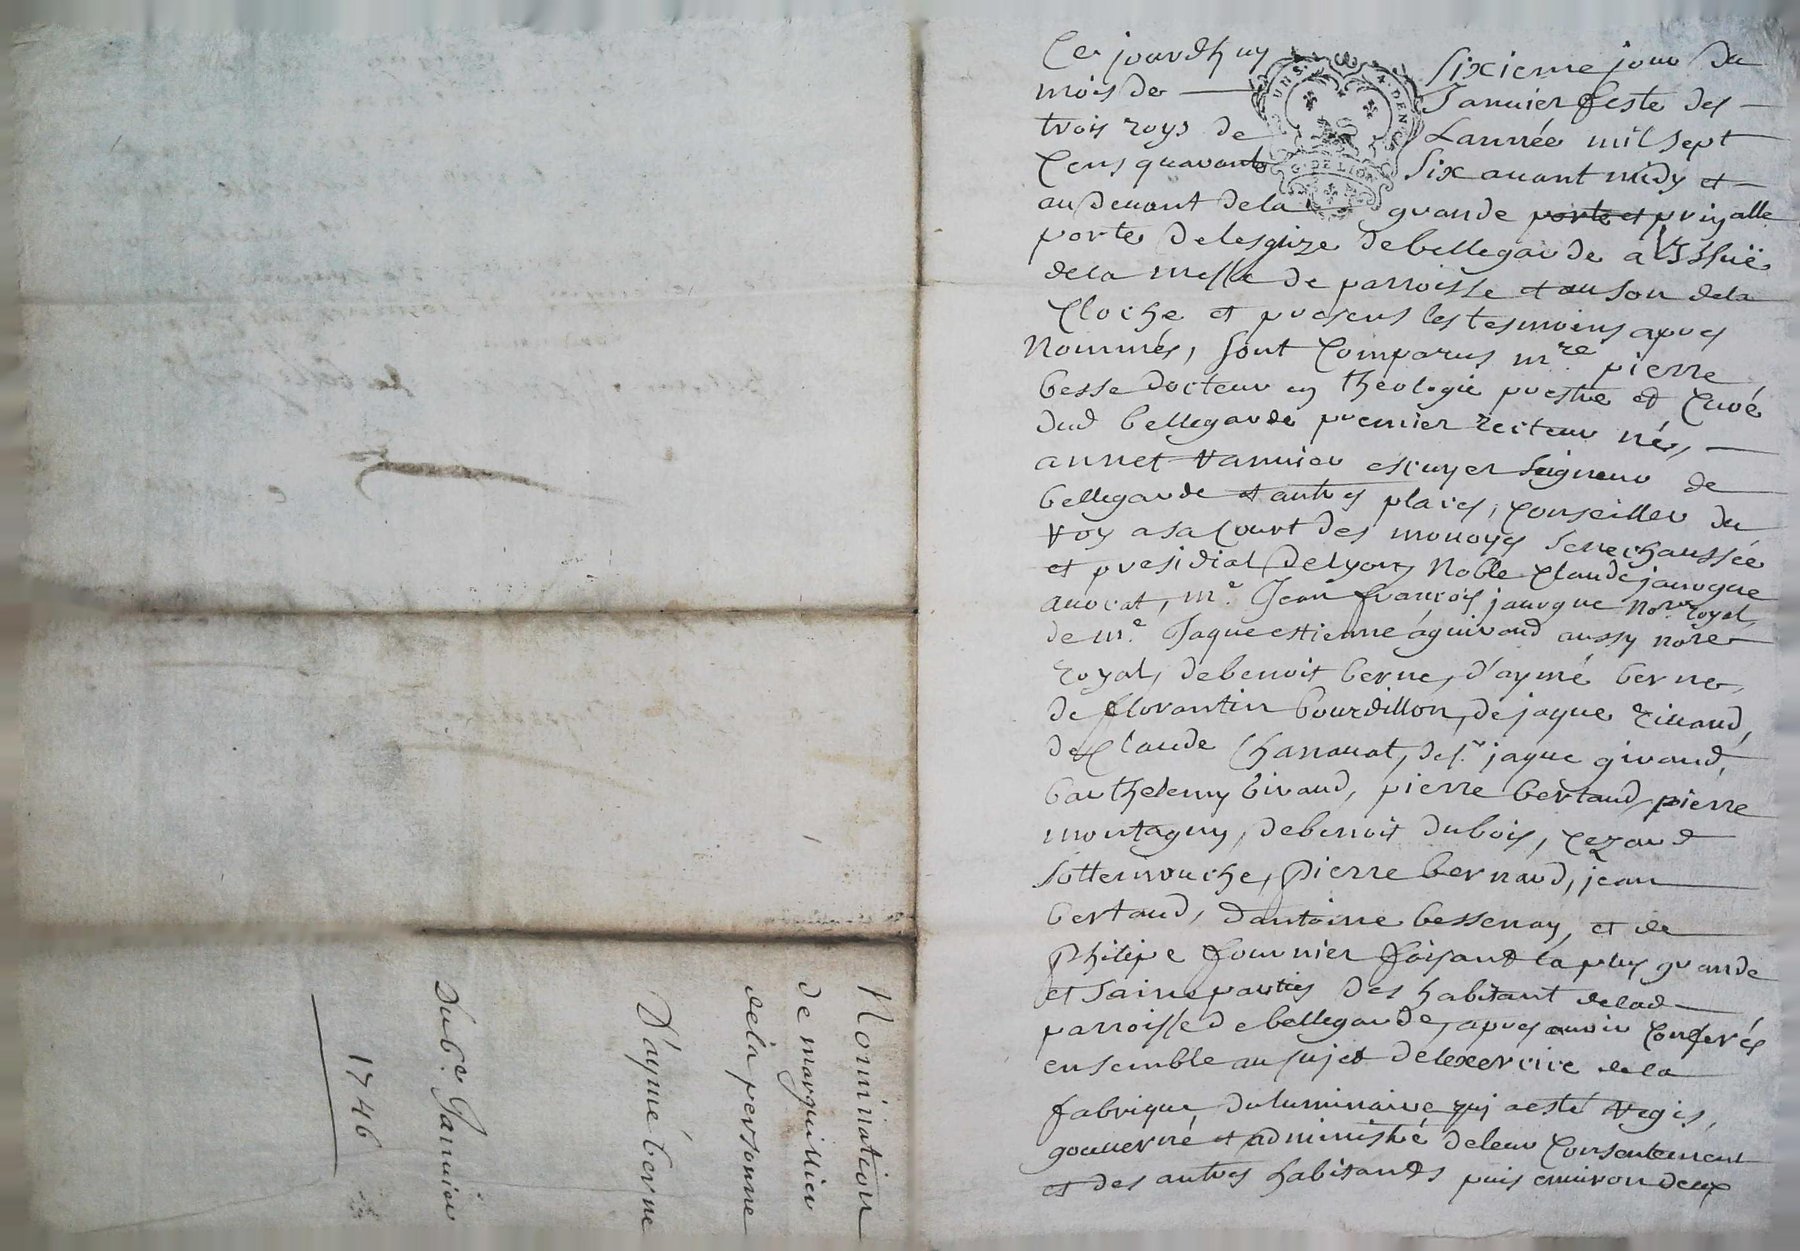 Nomination
de marguillier
de la personne
D'aymé berne
Du 6e. Janvier
1746
Ce jourdhuy sixieme jour du
mois de Janvier feste des
trois roys de Lannée mil sept
Cens quarante six avant midy et
au devant de la grande porte et prinsalle
porte de lesglize de bellegarde a l'issuë
de la messe de parroisse et au son de la
Cloche et presens les tesmoins apres
Nommés, sont Comparus mre pierre
besse docteur en theologie prestre et Curé
dud bellegarde premier recteur né,
annet vannier escuyer seigneur de
bellegarde et autres places, Conseiller du
roy a sa Court des monoyes senechaussée
et presidial de lyon, Noble Claude jauogue
auocat, me. Jean françois jauogue nore royal
de me. Jaque estienne aguiraud aussy nore
royal, de benoit berne, d'aymé berne,
de florantin bourdillon, de jaque riuaud,
de Claude Chanauat, de sr jaque giraud,
barthelemy biraud, pierre bertaud, pierre
montagny, de benoit dubois, Cezard
sottemouche, pierre bernaud, jean
bertaud, dantoine bessenay, et de
Philipe fournier faisant la plus grande
et saine parties des habitant de lad
parroisse de bellegarde, apres avoir Conferés
ensemble au sujet de lexercice de la
fabrique du luminaire qui a esté regis,
gouverné et administré de leur Consentement
et des autres habitants puis environ deux
G. DE LION